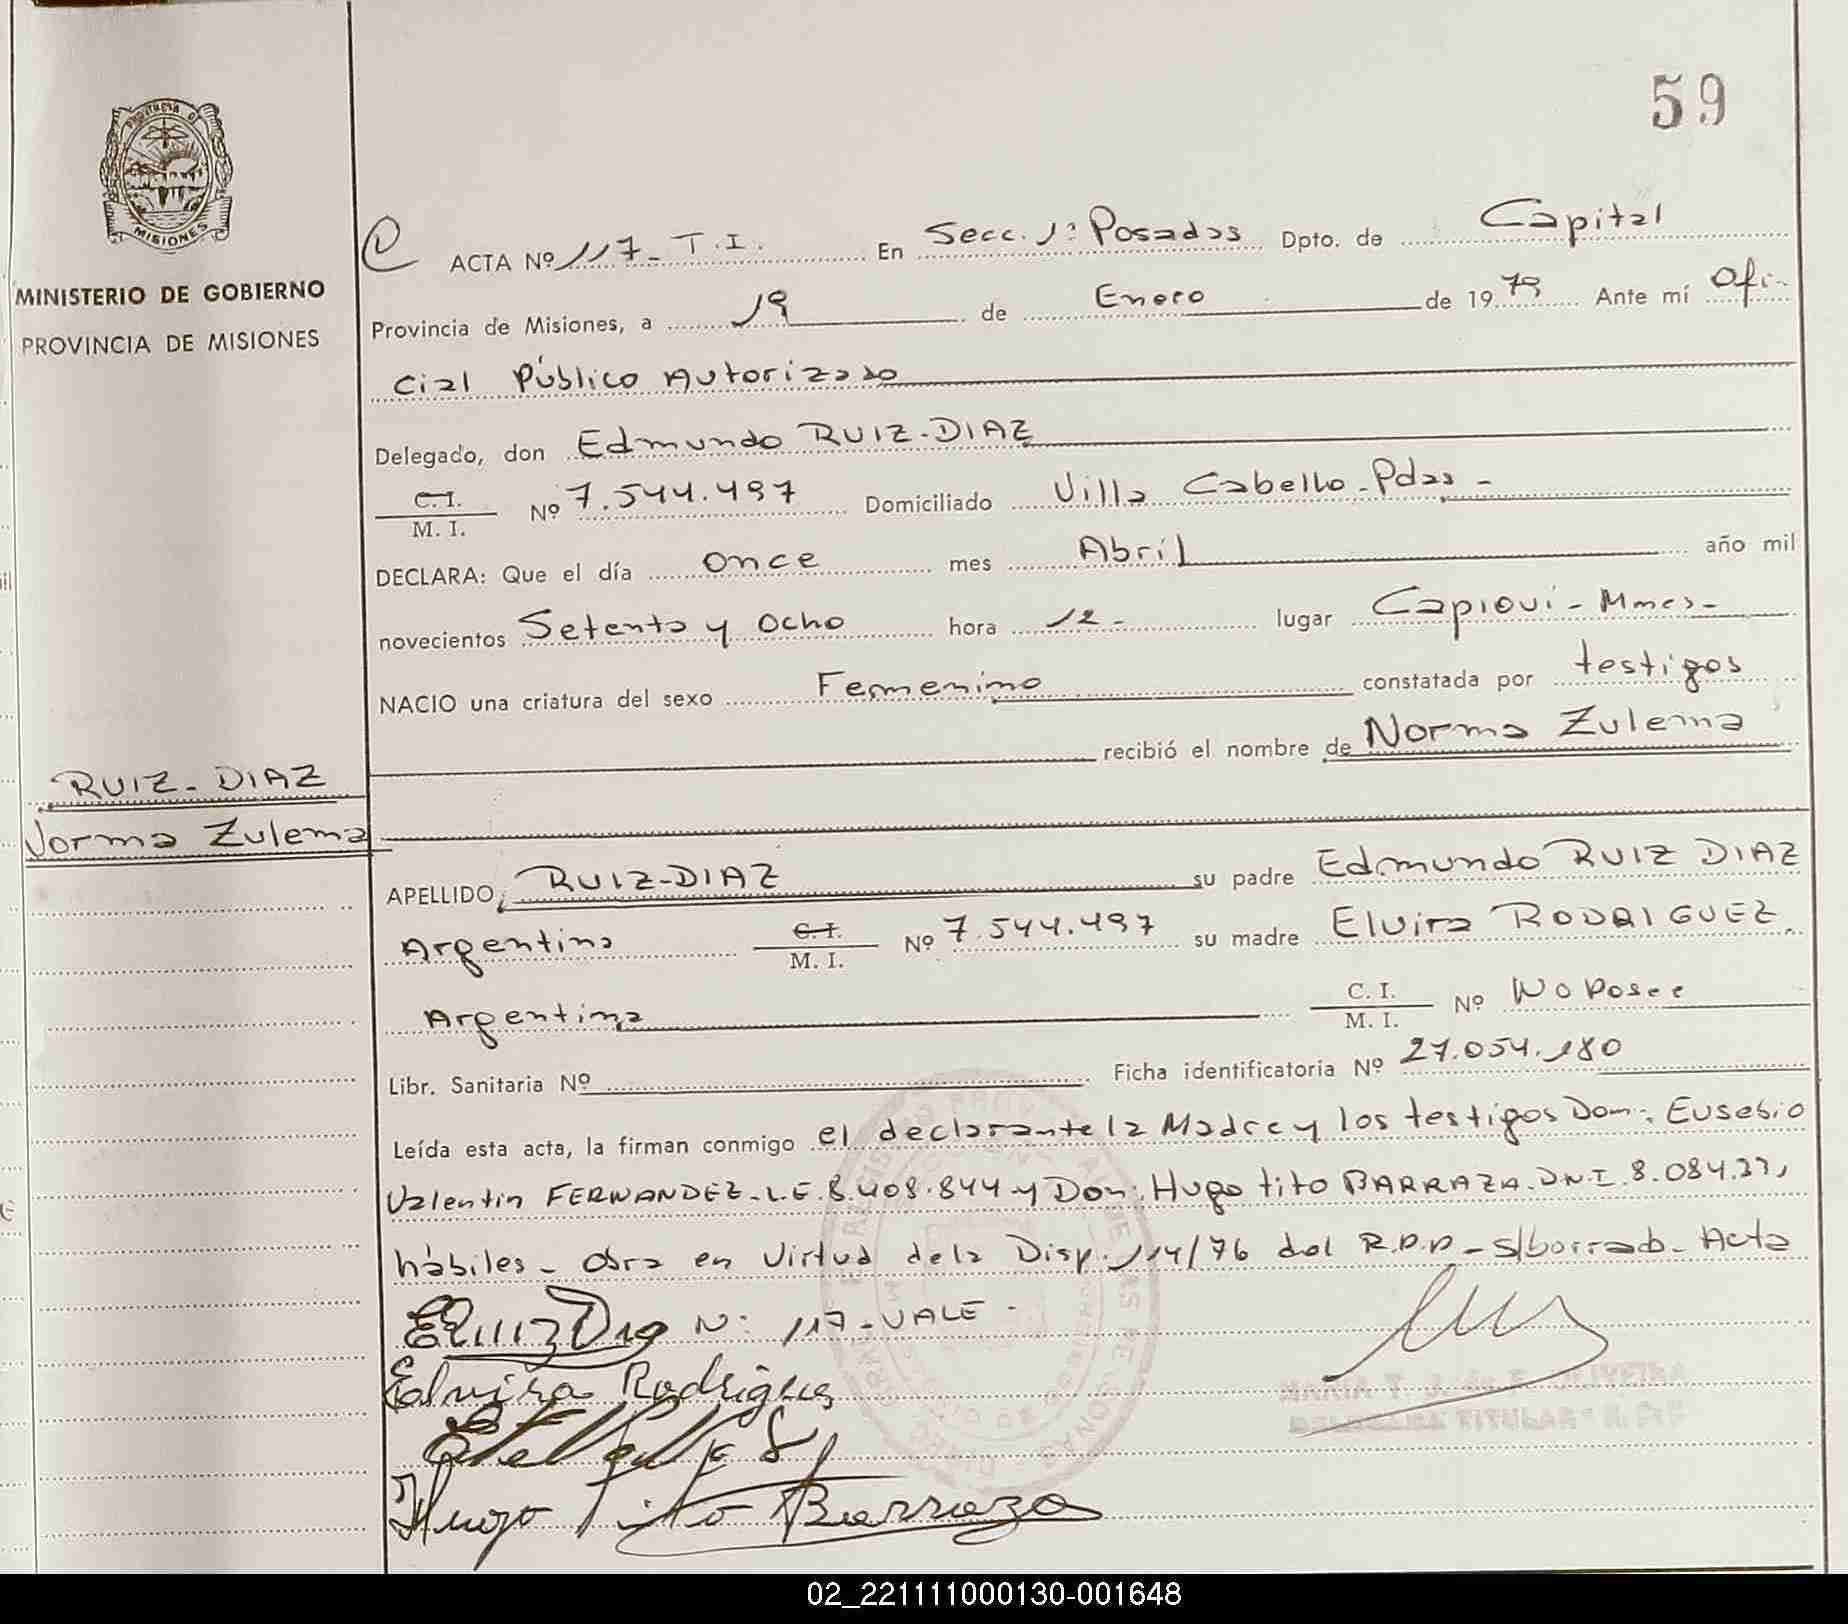 59
MISIONES
MINISTERIO DE GOBIERNO
PROVINCIA DE MISIONES
RUIZ-DIAZ
Norma Zulema
ACTA Nº 117- T.I. En Secc. 1ª Posadas Dpto. de Capital
Provincia de Misiones, a 19 de Enero de 1979 Ante mí Ofi-
cial Público Autorizado
Delegado, don Edmundo RUIZ-DIAZ
C.I. / M. I. Nº 7.544.497 Domiciliado Villa Cabello-Pdas-
DECLARA: Que el día once mes Abril año mil
novecientos Setenta y Ocho hora 12- lugar Capioví-Mnes-
NACIO una criatura del sexo Femenino constatada por testigos
recibió el nombre de Norma Zulema
APELLIDO: RUIZ-DIAZ su padre Edmundo RUIZ DIAZ
Argentino C.I. / M. I. Nº 7.544.497 su madre Elvira RODRIGUEZ
Argentina C. I. / M. I. Nº No Posee
Libr. Sanitaria Nº Ficha identificatoria Nº 27.054.180
Leída esta acta, la firman conmigo el declarante la Madre y los testigos Don: Eusebio
Valentin FERNANDEZ-L.E.8.408.844-y Don: Hugo tito BARRAZA-D.N.I.8.084.
hábiles- Obra en Virtud de la Disp. 114/76 del R.P.P- s/borrado- Acta
E Ruiz Diaz Nº 117-VALE-
Elvira Rodrigues
Hugo Tito Barraza
02_221111000130-001648